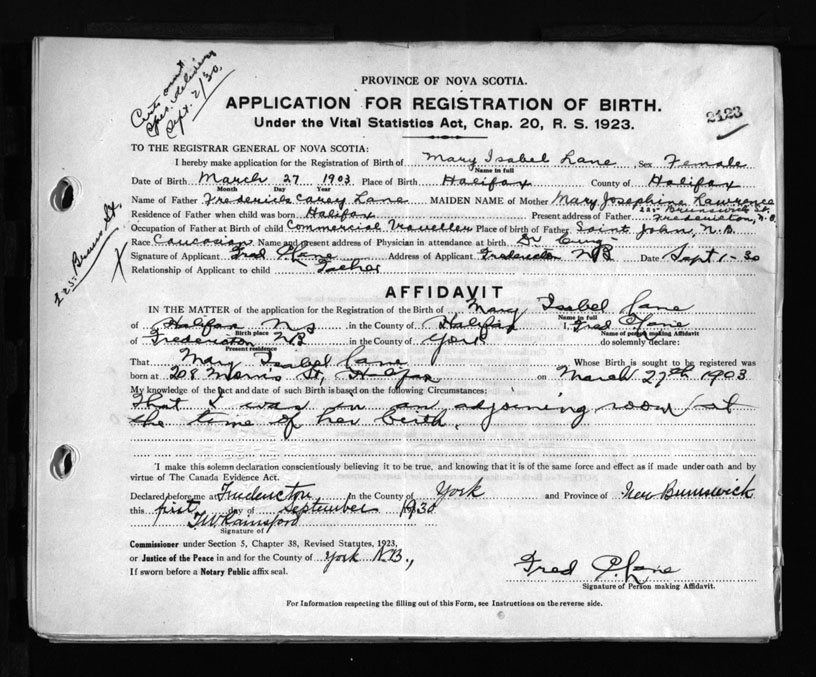 Sept. 2/30.
PROVINCE OF NOVA SCOTIA.
APPLICATION FOR REGISTRATION OF BIRTH.
2123
Under the Vital Statistics Act, Chap. 20, R. S. 1923.
TO THE REGISTRAR GENERAL OF NOVA SCOTIA:
I hereby make application for the Registration of Birth of Mary Isabel Lane Sex Female
Name in full
Date of Birth March 27 1903 Place of Birth Halifax County of Halifax
Month Day Year
Name of Father Frederick Carey Lane MAIDEN NAME of Mother Mary Josephine Lawrence
Brunswick St.
Residence of Father when child was born Halifax Present address of Father Fredericton, N.B.
Occupation of Father at Birth of child Commercial Traveller Place of birth of Father Saint John, N.B.
Race Caucasian Name and present address of Physician in attendance at birth Dr
Signature of Applicant Fred C Lane Address of Applicant Fredericton NB Date Sept 1-30
Relationship of Applicant to child Father
225 Bruns St.
X
AFFIDAVIT
IN THE MATTER of the application for the Registration of the Birth of Mary Isabel Lane
Name in full
of Halifax NS in the County of Halifax I, Fred C Lane
Birth place Name of person making Affidavit
of Fredericton NB in the County of York do solemnly declare:
Present residence
That Mary Isabel Lane Whose Birth is sought to be registered was
born at 208 Morris St, Halifax on March 27th 1903
My knowledge of the fact and date of such Birth is based on the following Circumstances:
That I was in an adjoining room at
the time of her birth.
I make this solemn declaration conscientiously believing it to be true, and knowing that it is of the same force and effect as if made under oath and by
virtue of The Canada Evidence Act.
Declared before me at Fredericton In the County of York and Province of New Brunswick
this first day of September 1930
Signature of
Commissioner under Section 5, Chapter 38, Revised Statutes, 1923,
or Justice of the Peace in and for the County of York N.B.,
If sworn before a Notary Public affix seal.
Fred C. Lane
Signature of Person making Affidavit.
For Information respecting the filling out of this Form, see Instructions on the reverse side.